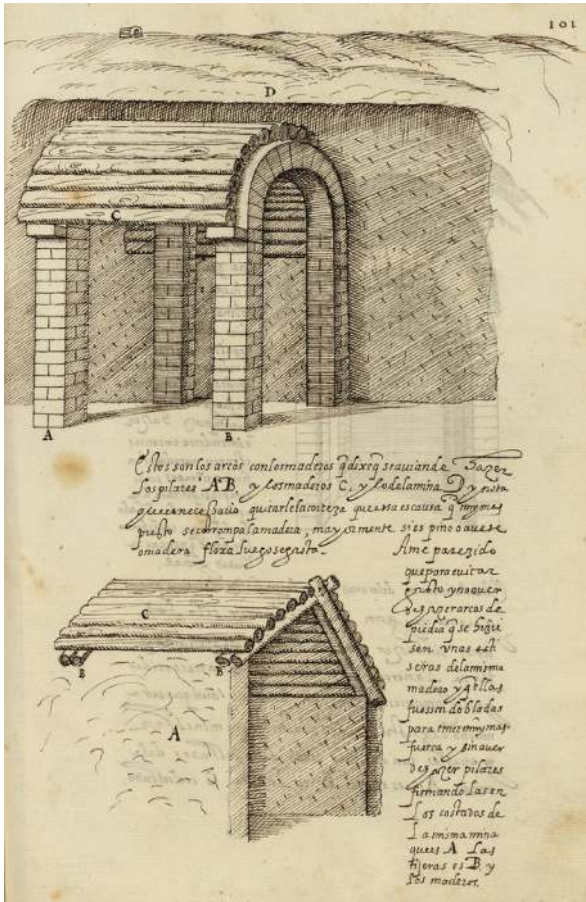 101
D
C
A B
Estos son los arcos con los maderos q̃ dixe q̃ se auian de hazer
los pilares A B, y los maderos C, y lo de la mina D y nota
que es necessario quitarle la corteza que esta es causa q̃ muy mas
presto se corrompa la madera, mayormente si es pino o
o madera floxa luego se gasta.
A me parezido
que para euitar
gasto y no auer
hazer arcos de
piedra q̃ se hizie
sen vnas esti
seras de la misma
madera y q̃ ellas
fuessen dobladas
para tener muy mas
fuerca y sin auer
de hazer pilares
firmando las en
los costados de
la misma mina
que es A las
tijeras es B y
los maderos.
C
B B
A